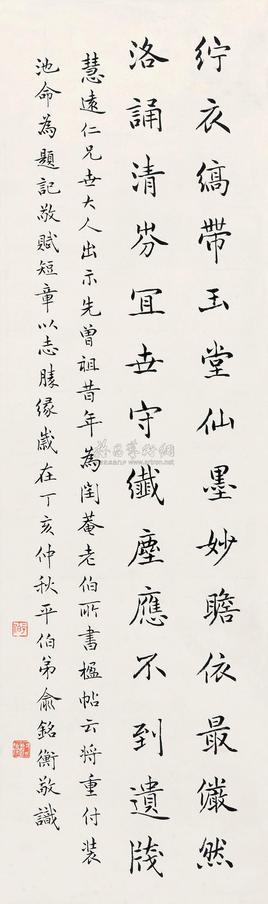 紵衣縞帶玉堂仙墨妙瞻依最儼然
洛誦清芬冝世守纖塵應不到遺牋
慧遠仁兄世大人出示先曾祖昔年為閏菴老伯所書楹帖云將重付裝
池命為題記敬賦短章以志勝緣歲在丁亥仲秋平伯弟俞銘衡敬識